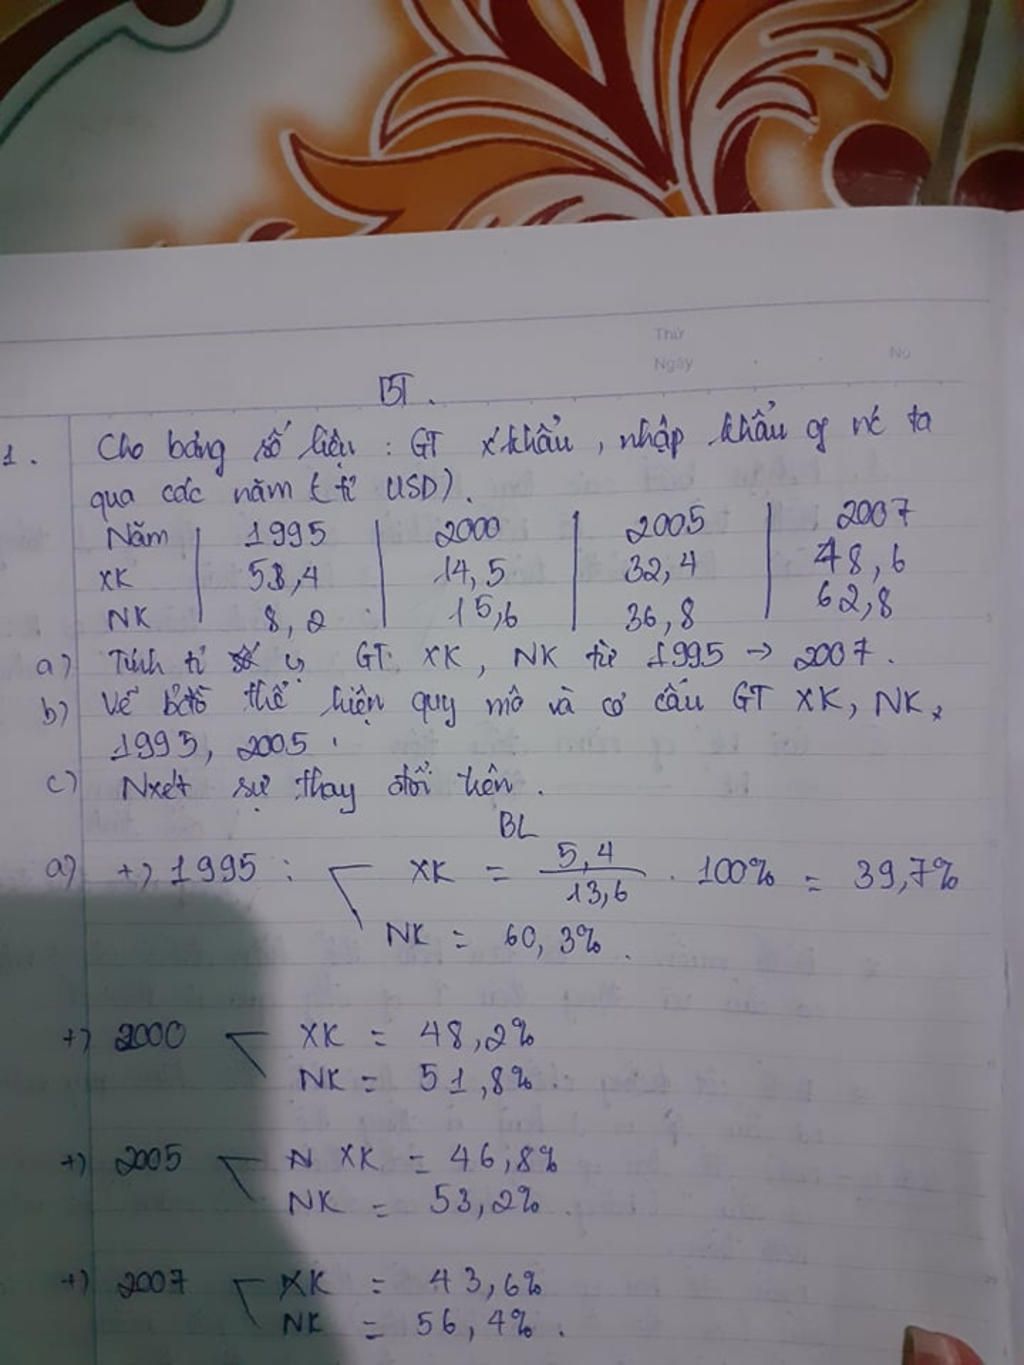 Thứ
Ngày No
BT.
1. Cho bảng số liệu : GT x'khẩu, nhập khẩu of nc ta
qua các năm (tỉ USD).
Năm 1995 2000 2005 2007
XK 53,4 14,5 32,4 48,6
NK 8,2 15,6 36,8 62,8
a) Tính tỉ GT XK, NK từ 1995 → 2007.
b) Vẽ bđồ thể hiện quy mô và cơ cấu GT XK, NK,
1995, 2005.
c) Nxét sự thay đổi trên.
BL
a) +) 1995 : XK = 5,4 / 13,6 . 100% = 39,7%
NK = 60,3%.
+) 2000 XK = 48,2%
NK = 51,8%.
+) 2005 XK = 46,8%
NK = 53,2%.
+) 2007 XK = 43,6%
NK = 56,4%.